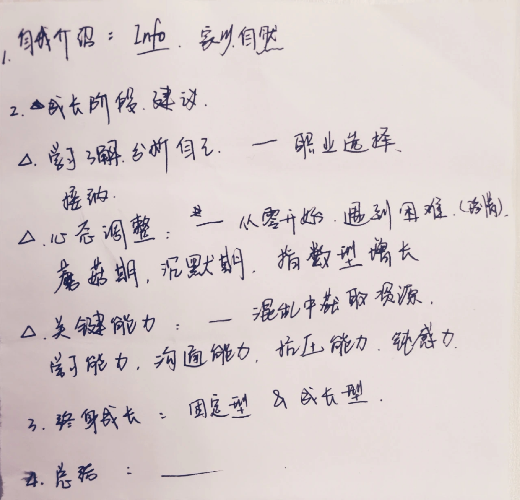 1. 自我介绍：Info. 亲切.自然
2. △成长阶段.建议.
△. 学习了解.分析自己 — 职业选择.
接纳.
△.心态调整： — 从零开始.遇到困难.(疫情).
蘑菇期, 沉默期. 指数型增长
△.关键能力： — 混乱中获取资源.
学习能力, 沟通能力. 抗压能力. 钝感力.
3. 终身成长：固定型 & 成长型.
4. 总结：——